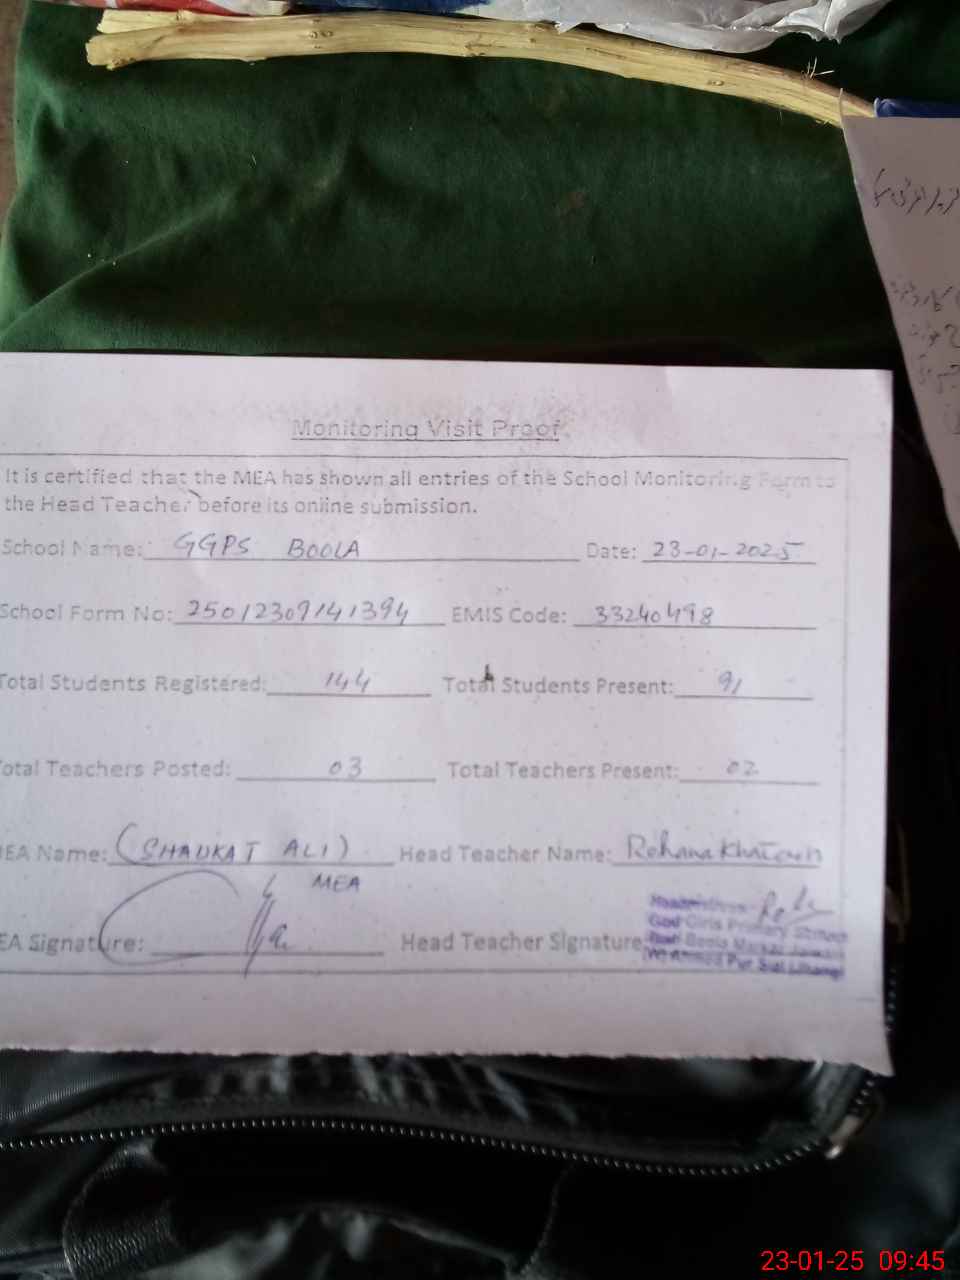 Monitoring Visit Proof
It is certified that the MEA has shown all entries of the School Monitoring Form to
the Head Teacher before its online submission.
School Name: GGPS BOOLA Date: 23-01-2025
School Form No: 25012309141394 EMIS Code: 33240498
Total Students Registered: 144 Total Students Present: 91
Total Teachers Posted: 03 Total Teachers Present: 02
MEA Name: (SHAUKAT ALI) Head Teacher Name: Rehana Khatoon
MEA
EA Signature: Head Teacher Signature
Headmistress
Govt Girls Primary School
Boola Markaz
Ahmed Pur Sial (Jhang)
23-01-25 09:45